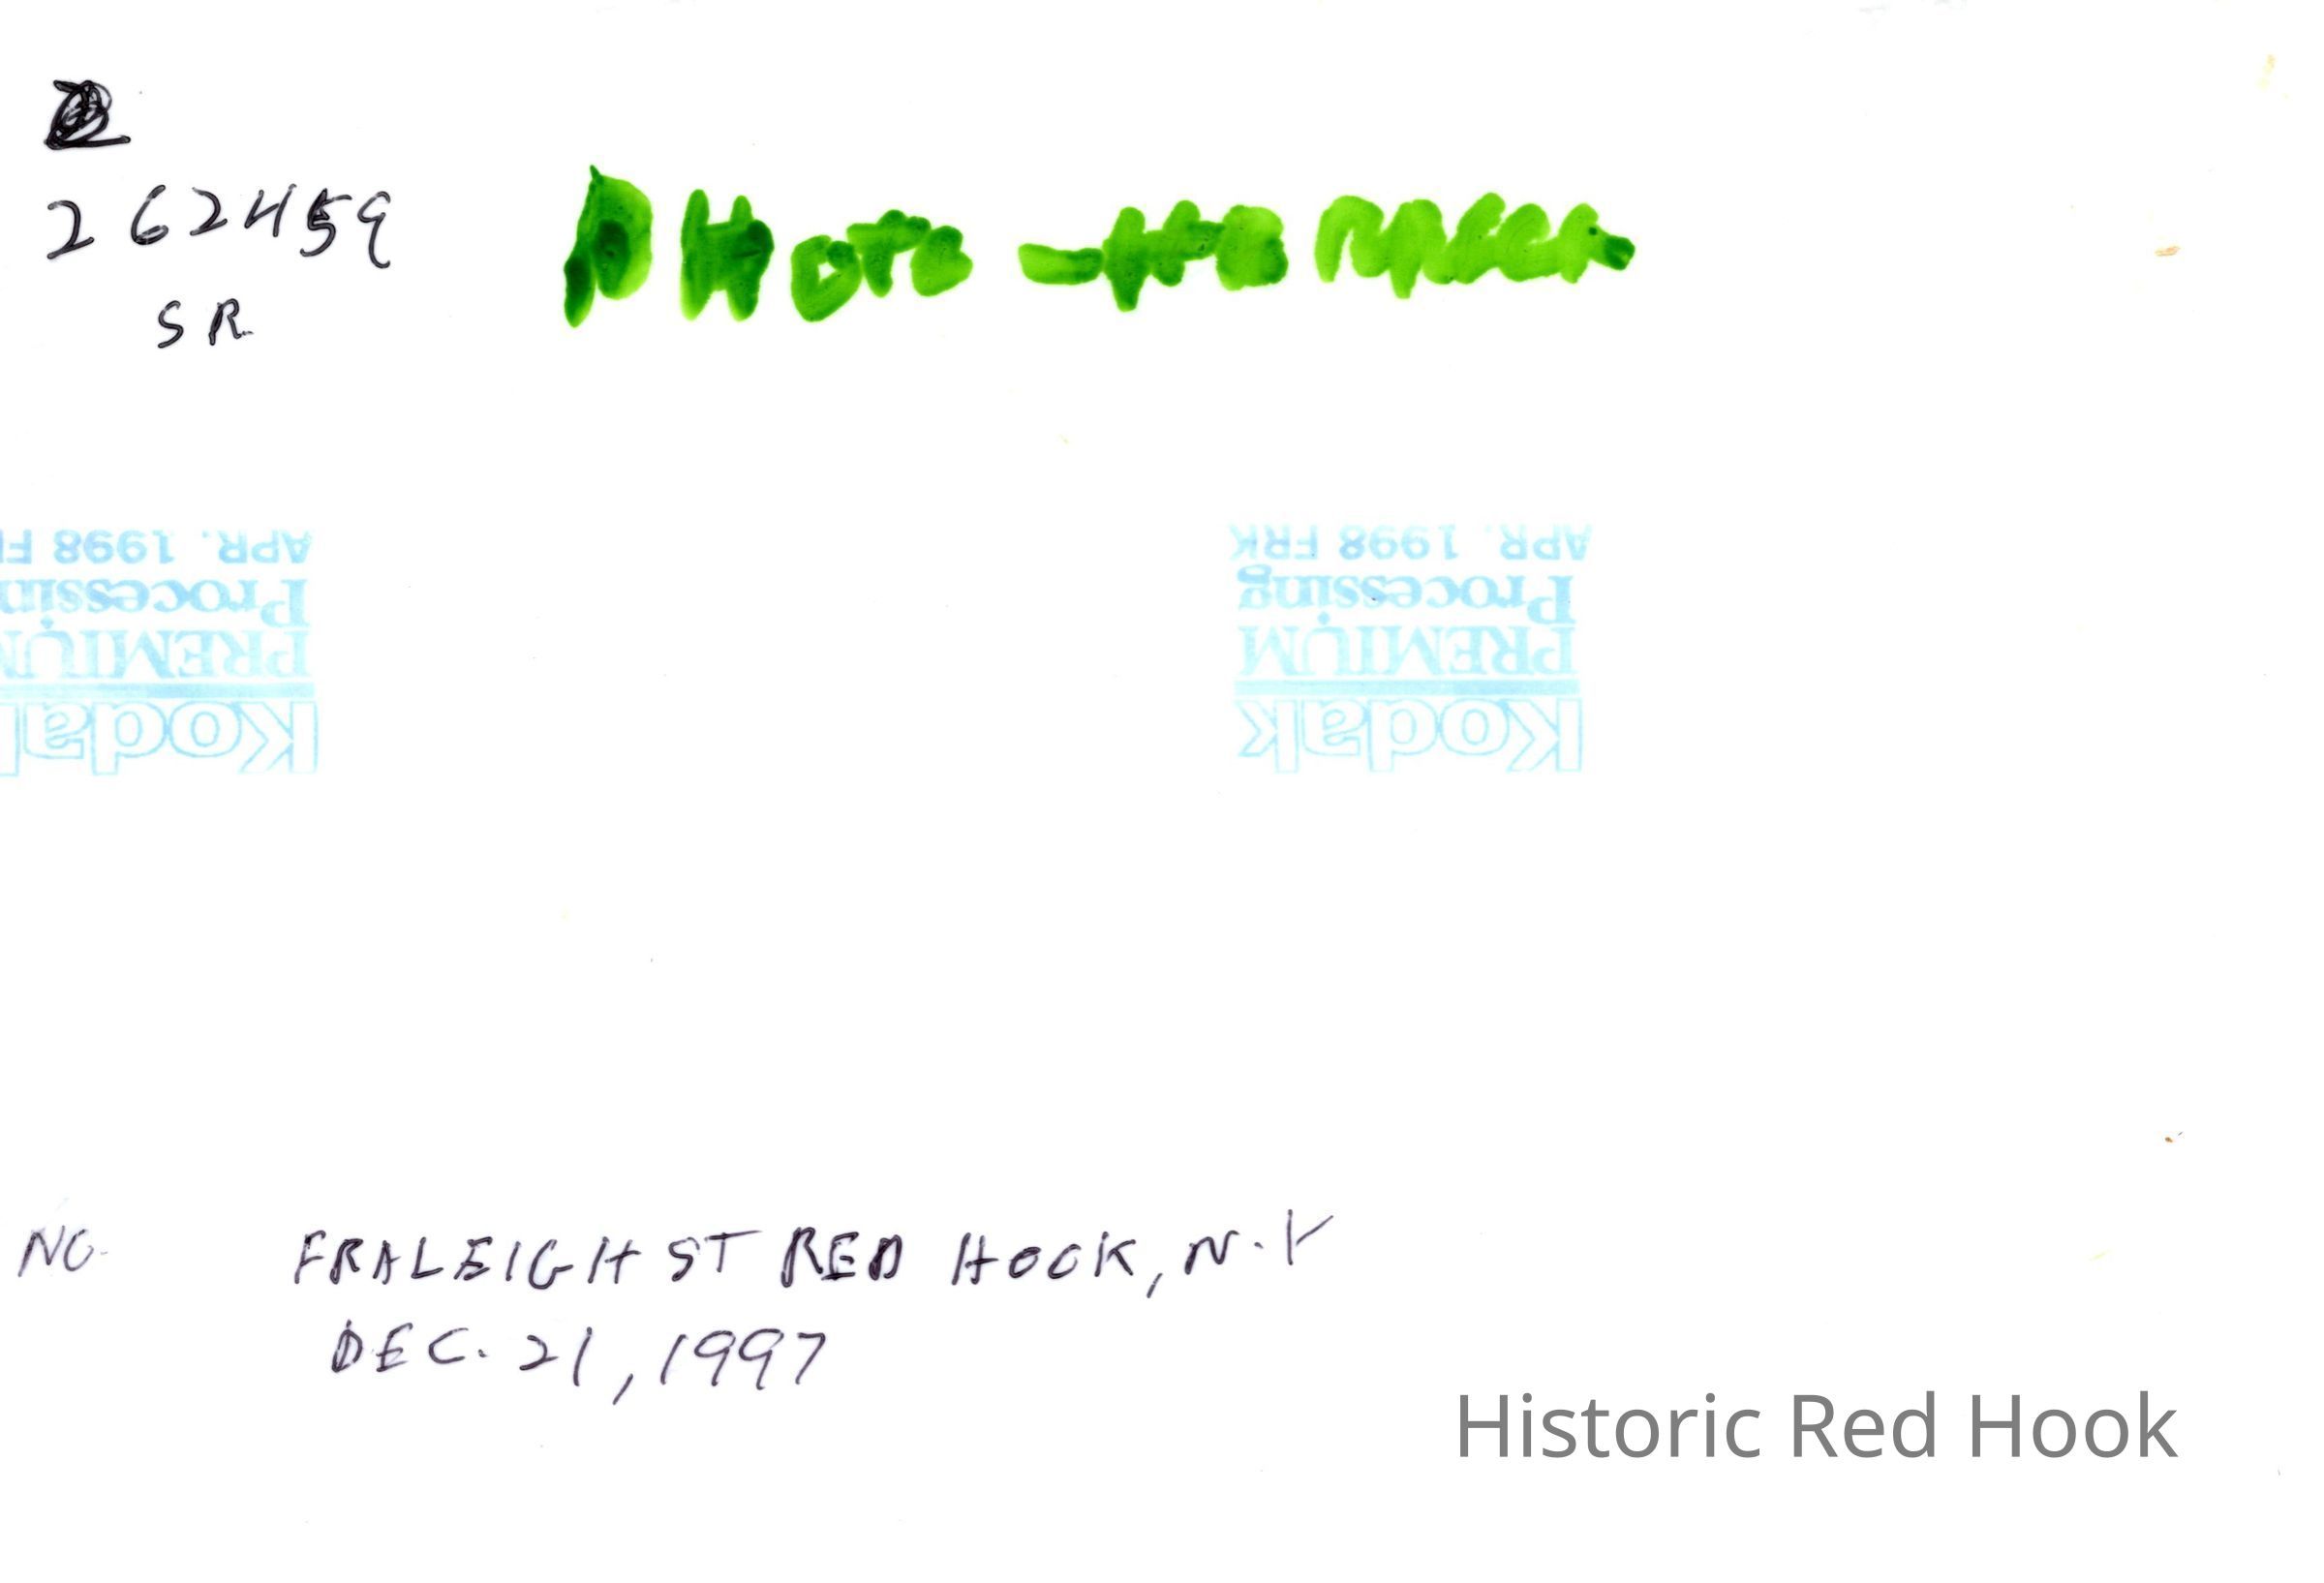 262459
SR
APR. 1998 F
Processin
PREMIUM
Kodak
APR. 1998 FRK
Processing
PREMIUM
Kodak
NO. FRALEIGH ST RED HOOK, N.Y
DEC. 21, 1997
Historic Red Hook